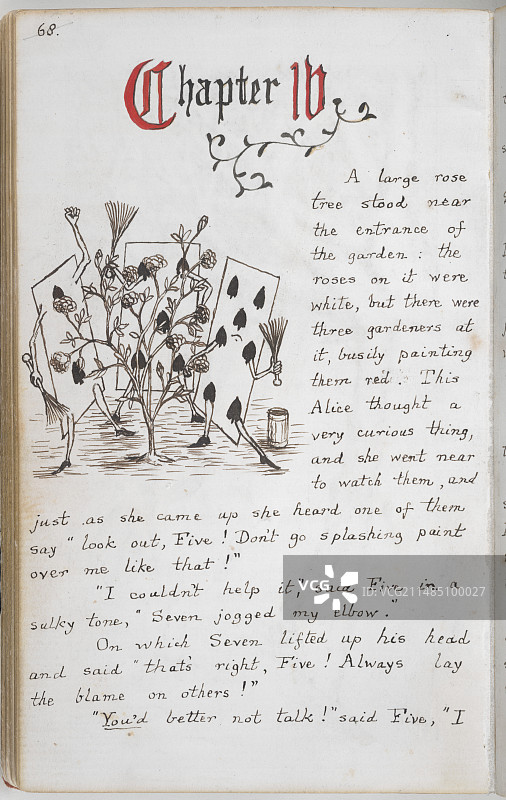 68.
Chapter IV.
A large rose
tree stood near
the entrance of
the garden : the
roses on it were
white, but there were
three gardeners at
it, busily painting
them red. This
Alice thought a
very curious thing,
and she went near
to watch them, and
just as she came up she heard one of them
say "look out, Five! Don't go splashing paint
over me like that!"
"I couldn't help it," said Five in a
sulky tone, "Seven jogged my elbow."
On which Seven lifted up his head
and said "that's right, Five! Always lay
the blame on others!"
"You'd better not talk!" said Five, "I
VCG
VCG.COM
ID:VCG211485100027